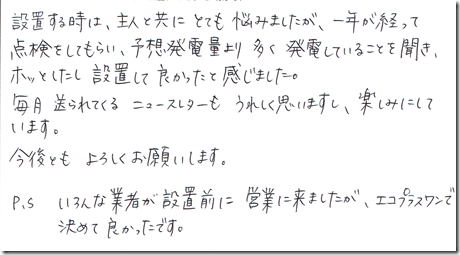 設置する時は、主人と共に とても 悩みましたが、一年が経って
点検をしてもらい、予想発電量より 多く 発電していることを聞き、
ホッとしたし 設置して 良かったと 感じました。
毎月 送られてくる ニュースレターも うれしく思いますし、楽しみにして
います。
今後とも よろしくお願いします。
P.S いろんな業者が設置前に 営業に来ましたが、エコプラスワンで
決めて 良かったです。